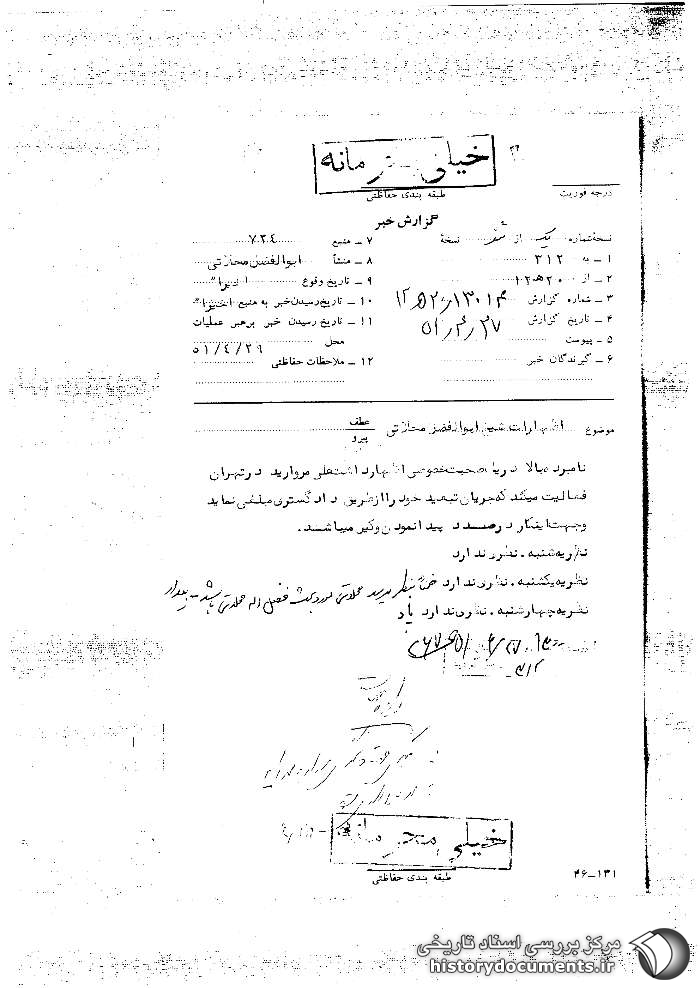 خیلی محرمانه
طبقه بندی حفاظتی
درجه فوریت
گزارش خبر
نسخه شماره یک از شش نسخه
۱ - به ۳۱۲
۲ - از ۲۰ ه‍ ۱۲
۳ - شماره گزارش
۴ - تاریخ گزارش
۵ - پیوست
۶ - گیرندگان خبر
۷ - منبع ۷۳۴
۸ - منشأ ابوالفضل محلاتی
۹ - تاریخ وقوع اخیرا"
۱۰ - تاریخ رسیدن خبر به منبع اخیرا"
۱۱ - تاریخ رسیدن خبر به رهبر عملیات
محل ۵۱/۴/۲۹
۱۲ - ملاحظات حفاظتی
موضوع اظهارات شیخ ابوالفضل محلاتی
عطف
پیرو
نامبرده بالا در یک صحبت خصوصی اظهار داشت علی مروارید در تهران
فعالیت میکند که جریان تبعید خود را از طریق دادگستری منتفی نماید
وجهت اینکار درصدد پیدا نمودن وکیل میباشد.
نظریه شنبه . نظری ندارد
نظریه یکشنبه . نظری ندارد ضمناً بنظر میرسد محلاتی مورد بحث فضل اله محلاتی باشد
نظریه چهارشنبه . نظری ندارد
خیلی محرمانه
طبقه بندی حفاظتی
۳۶-۱۳۱
مرکز بررسی اسناد تاریخی
historydocuments.ir